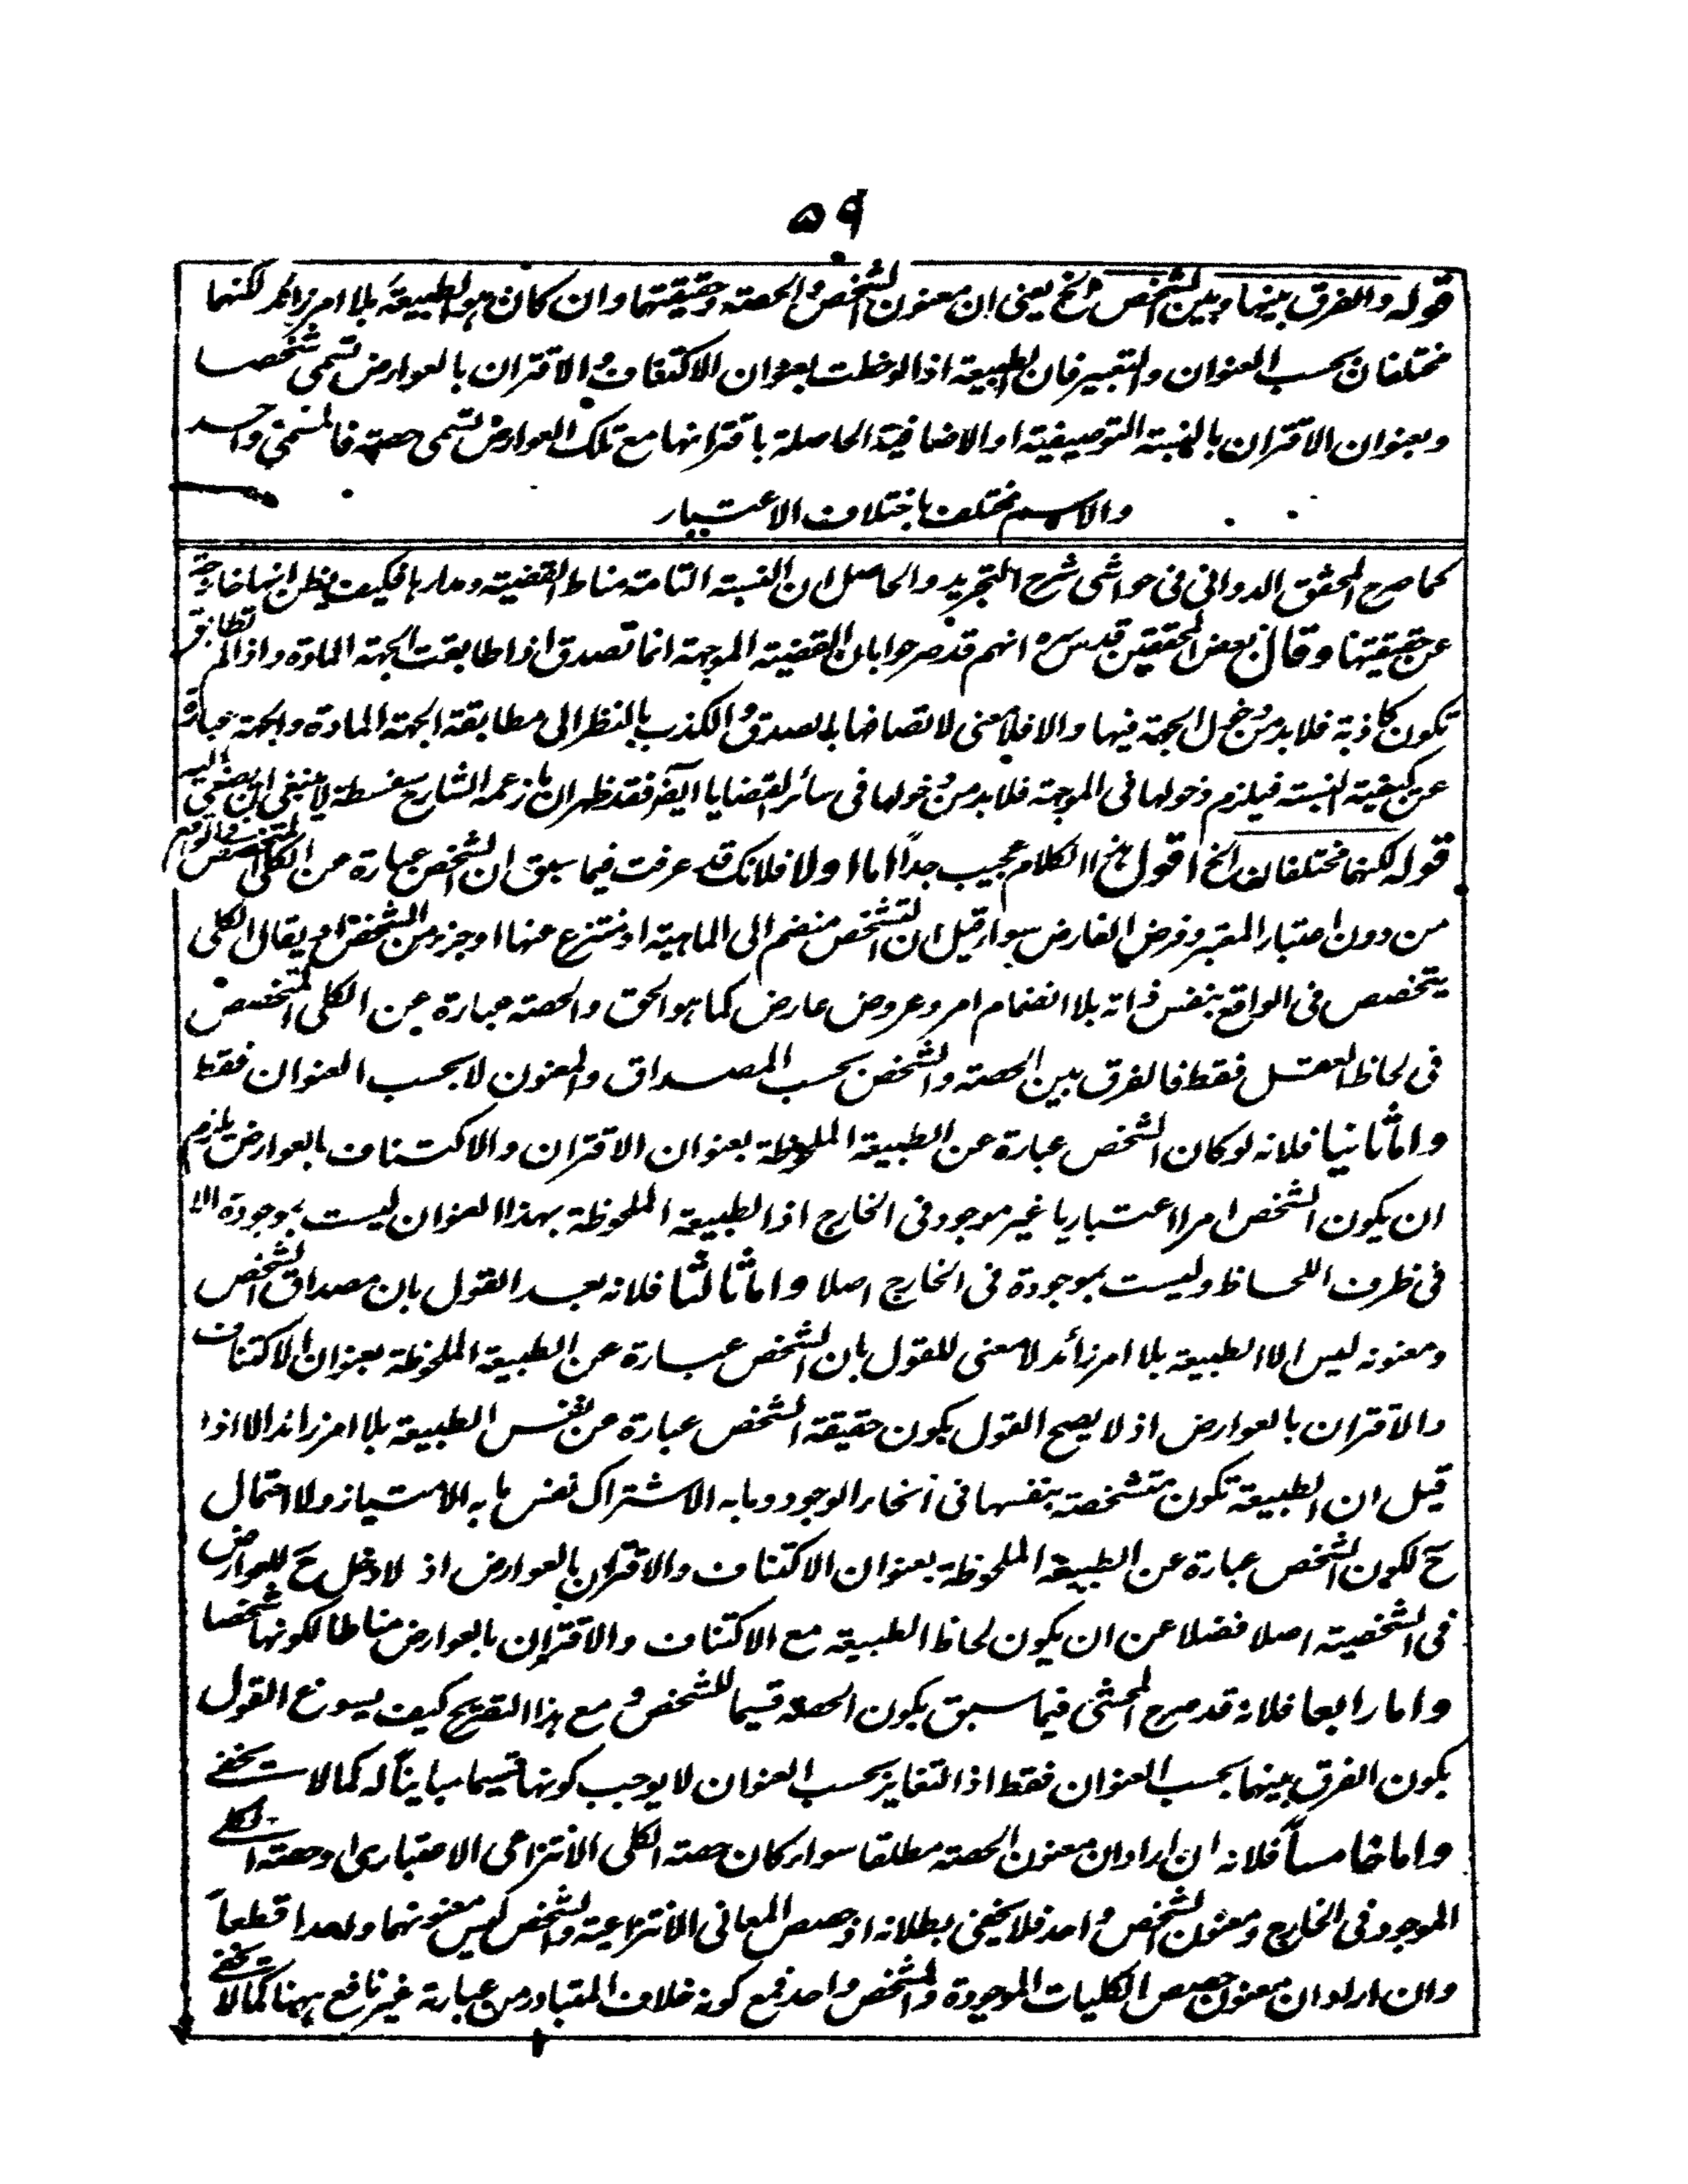 ٥٩
قوله والفرق بينها وبين الشخص الخ يعني ان معنون الشخص والحصته وحقيقتها وان كان هو الطبيعة بلا امر زائد لكنهما
مختلفان بحسب العنوان والتعبير فان الطبيعة اذا لوحظت بعنوان الاكتناف والاقتران بالعوارض تسمى شخصا
وبعنوان الاقتران بالنسبة التوصيفية او الاضافية الحاصلة باقترانها مع تلك العوارض تسمى حصته فالمسمى واحد
والاسم مختلف باختلاف الاعتبار
كما صرح المحقق الدواني في حواشي شرح التجريد والحاصل ان النسبته التامة مناط القضيته ومدارها فكيف يظن انها خارجة
عن حقيقتها وقال بعض المحققين قدس سره انهم قد صرحوا بان القضيته الموجهة انما تصدق اذا طابقت الجهة المادة واذا لم تطابق
تكون كاذبة فلا بد من دخول الجهة فيها والا فلا معنى لاتصافها بالصدق والكذب بالنظر الى مطابقة الجهة المادة والجهة عبارة
عن كيفية النسبته فيلزم دخولها في الموجهة فلا بد من دخولها في سائر القضايا ايضا فقد ظهر ان ما زعمه الشارح سفسطة لا ينبغي ان يصغى اليه
قوله لكنهما مختلفان الخ اقول هذا الكلام عجيب جداً اما اولا فلانك قد عرفت فيما سبق ان الشخص عبارة عن الكلي المتخصص في الواقع
من دون اعتبار المعتبر وفرض الفارض سواء قيل ان التشخص منضم الى الماهية او منتزع عنها او جزء من الشخص او يقال الكلي
يتخصص في الواقع بنفس ذاته بلا انضمام امر وعروض عارض كما هو الحق والحصته عبارة عن الكلي المتخصص
في لحاظ العقل فقط فالفرق بين الحصته والشخص بحسب المصداق والمعنون لا بحسب العنوان فقط
واما ثانيا فلانه لو كان الشخص عبارة عن الطبيعة الملحوظة بعنوان الاقتران والاكتناف بالعوارض يلزم
ان يكون الشخص امرا اعتباريا غير موجود في الخارج اذ الطبيعة الملحوظة بهذا العنوان ليست بموجودة الا
في ظرف اللحاظ وليست بموجودة في الخارج اصلا واما ثالثا فلانه بعد القول بان مصداق الشخص
ومعنونه ليس الا الطبيعة بلا امر زائد لا معنى للقول بان الشخص عبارة عن الطبيعة الملحوظة بعنوان الاكتناف
والاقتران بالعوارض اذ لا يصح القول بكون حقيقة الشخص عبارة عن نفس الطبيعة بلا امر زائد الا اذا
قيل ان الطبيعة تكون متشخصة بنفسها في انحاء الوجود وما به الاشتراك نفس ما به الامتياز ولا احتمال
ح لكون الشخص عبارة عن الطبيعة الملحوظة بعنوان الاكتناف والاقتران بالعوارض اذ لا دخل ح للعوارض
في الشخصية اصلا فضلا عن ان يكون لحاظ الطبيعة مع الاكتناف والاقتران بالعوارض مناطا لكونها شخصا
واما رابعا فلانه قد صرح المحشي فيما سبق بكون الحصته قسيما للشخص و مع هذا التصريح كيف يسوغ القول
بكون الفرق بينهما بحسب العنوان فقط اذ التغاير بحسب العنوان لا يوجب كونها قسيما مبايناً له كما لا يخفى
واما خامساً فلانه ان اراد ان معنون الحصته مطلقا سواء كان حصته الكلي الانتزاعي الاعتباري او حصته الكلي
الموجود في الخارج ومعنون الشخص واحد فلا يخفى بطلانه اذ حصص المعاني الانتزاعية والشخص ليس معنونهما واحدا قطعاً
وان اراد ان معنون حصص الكليات الموجودة والشخص واحد فمع كونه خلاف المتبادر من عبارته غير نافع ههنا كما لا يخفى